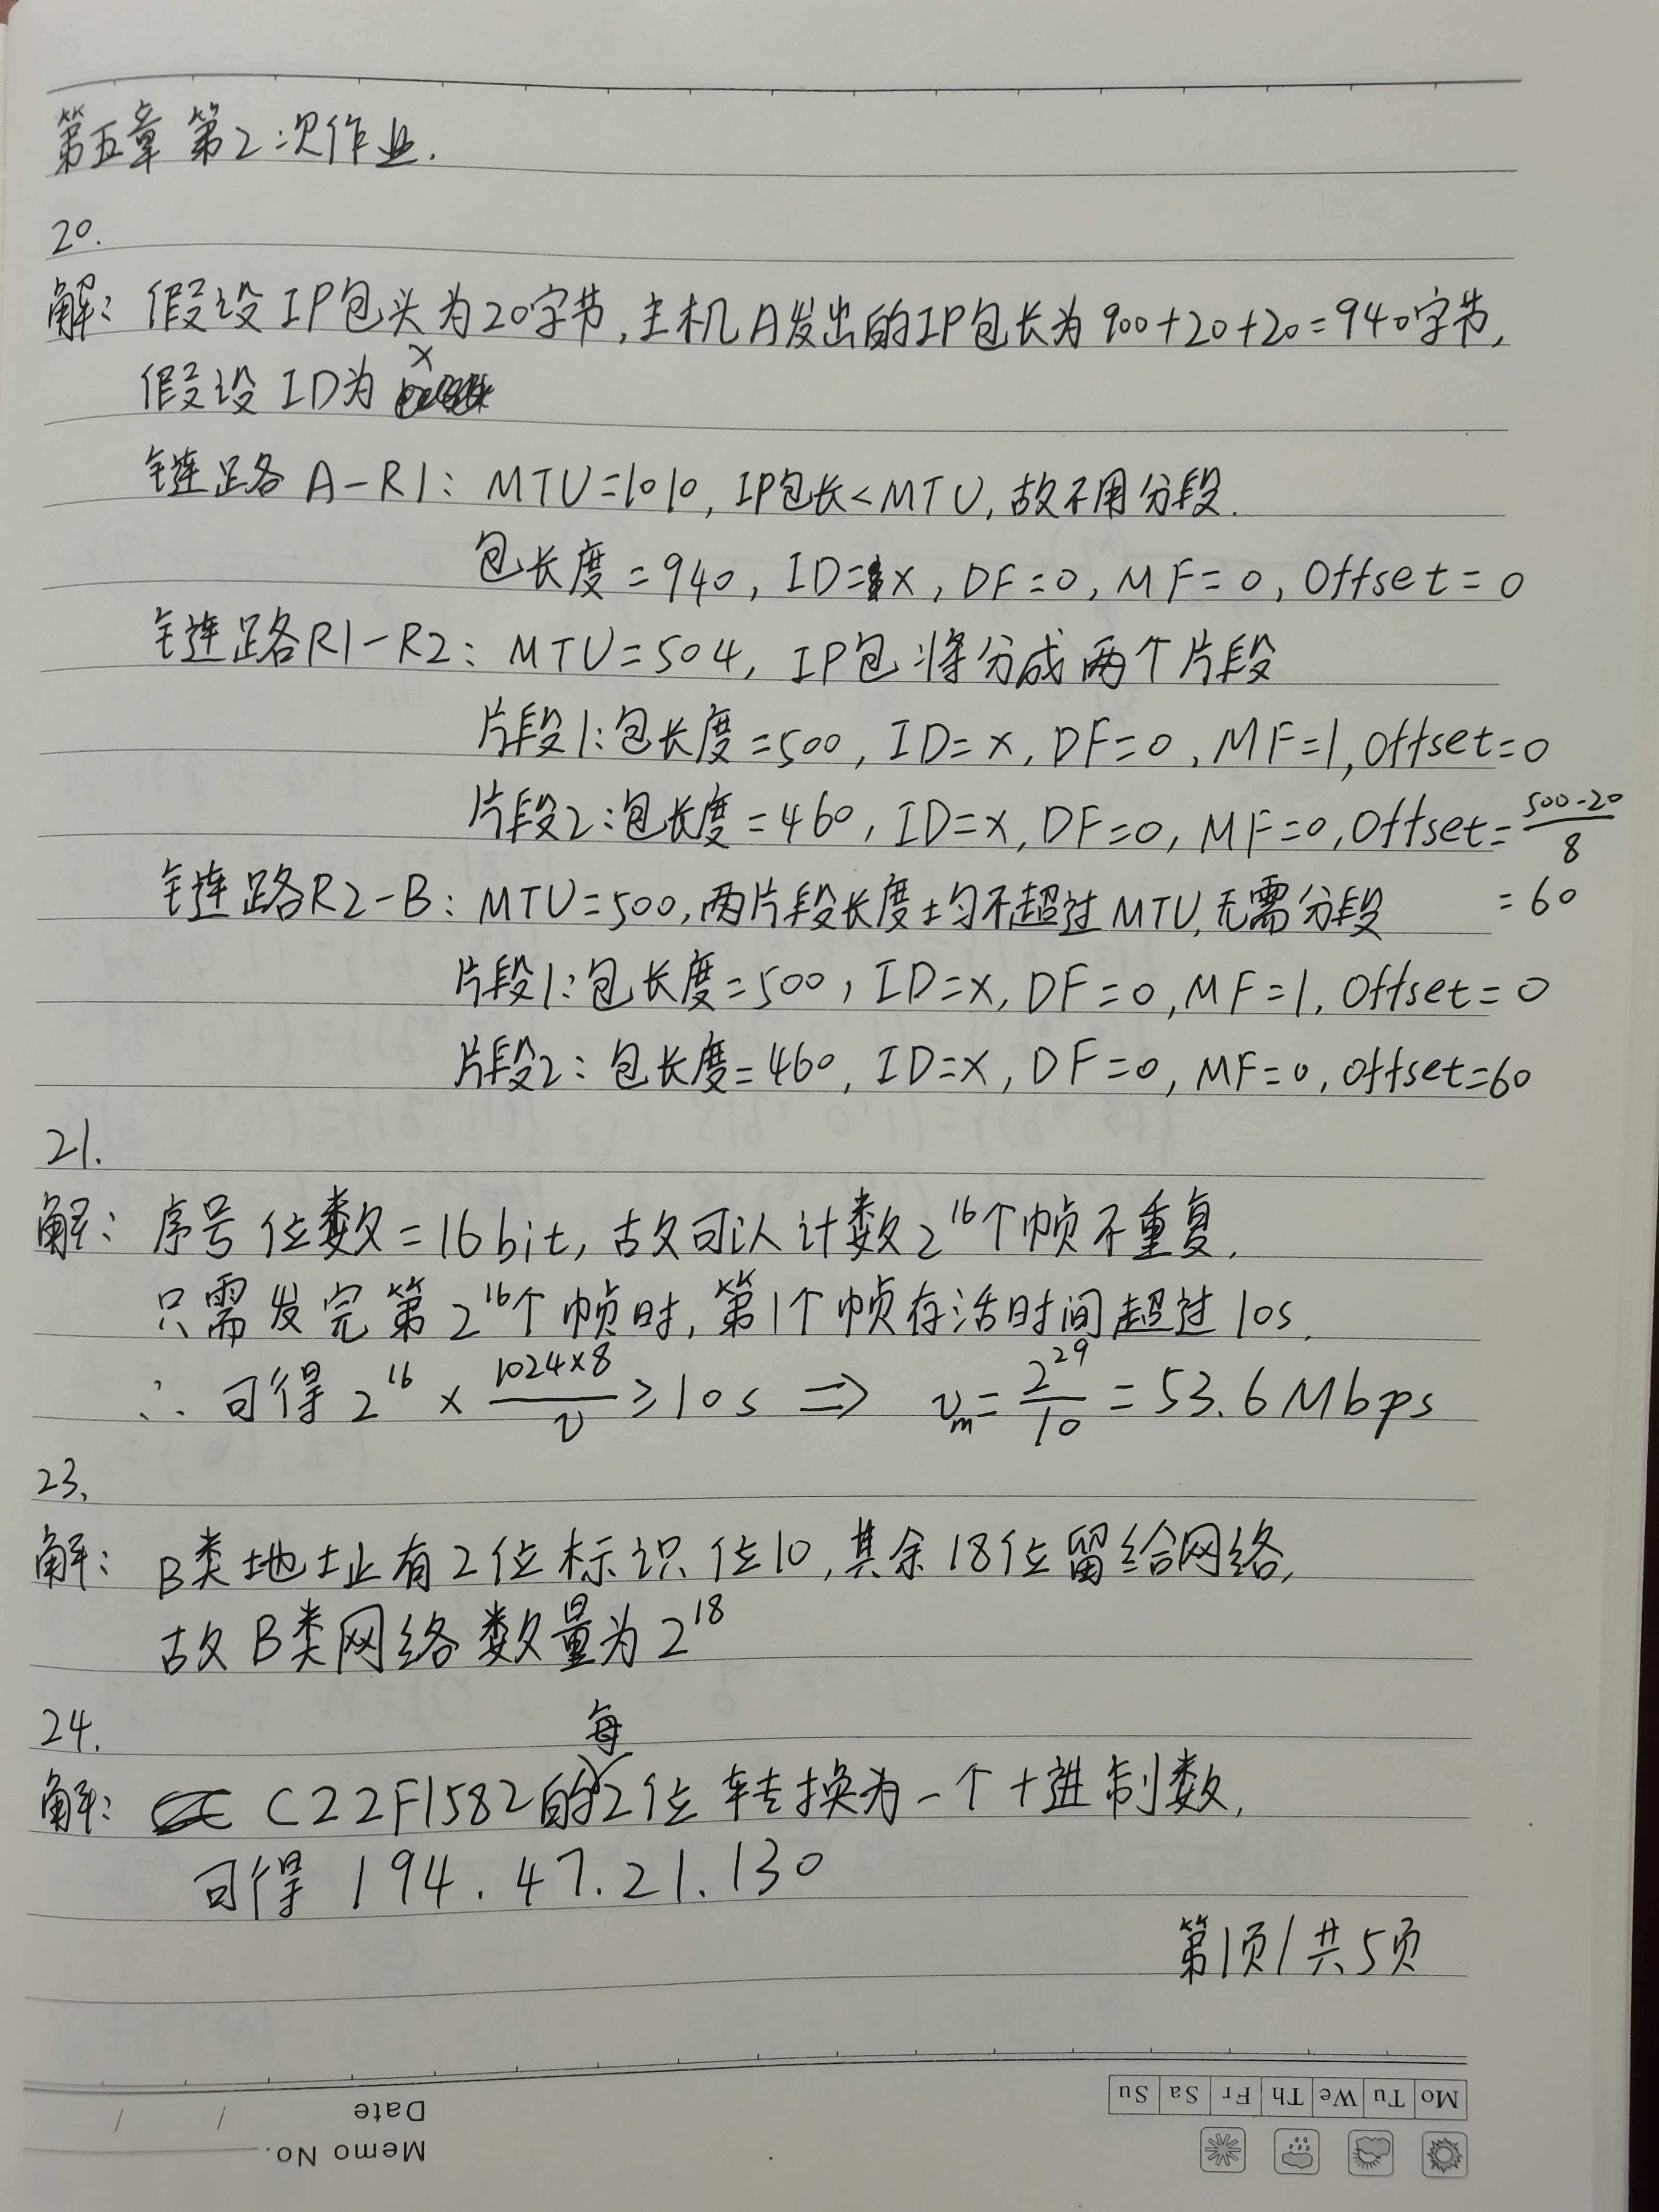 第五章 第2次作业.
20.
解: 假设IP包头为20字节,主机A发出的IP包长为900+20+20=940字节,
假设ID为x
链路A-R1: MTU=1010, IP包长<MTU, 故不用分段.
包长度=940, ID=x, DF=0, MF=0, Offset=0
链路R1-R2: MTU=504, IP包将分成两个片段
片段1:包长度=500, ID=x, DF=0, MF=1, Offset=0
片段2:包长度=460, ID=x, DF=0, MF=0, Offset=\frac{500-20}{8}
链路R2-B: MTU=500,两片段长度均不超过MTU,无需分段 =60
片段1:包长度=500, ID=x, DF=0, MF=1, Offset=0
片段2: 包长度=460, ID=x, DF=0, MF=0, Offset=60
21.
解: 序号位数=16bit, 故可以计数2^{16}个帧不重复.
只需发完第2^{16}个帧时, 第1个帧存活时间超过10s.
∴可得 2^{16} × \frac{1024×8}{v} ≥10s ⇒ v_m=\frac{2^{29}}{10}=53.6Mbps
23.
解: B类地址有2位标识位10,其余18位留给网络,
故B类网络数量为2^{18}
24.
解: C22F1582的每2位转换为一个十进制数,
可得 194.47.21.130
第1页/共5页
Mo Tu We Th Fr Sa Su
Date / /
Memo No.